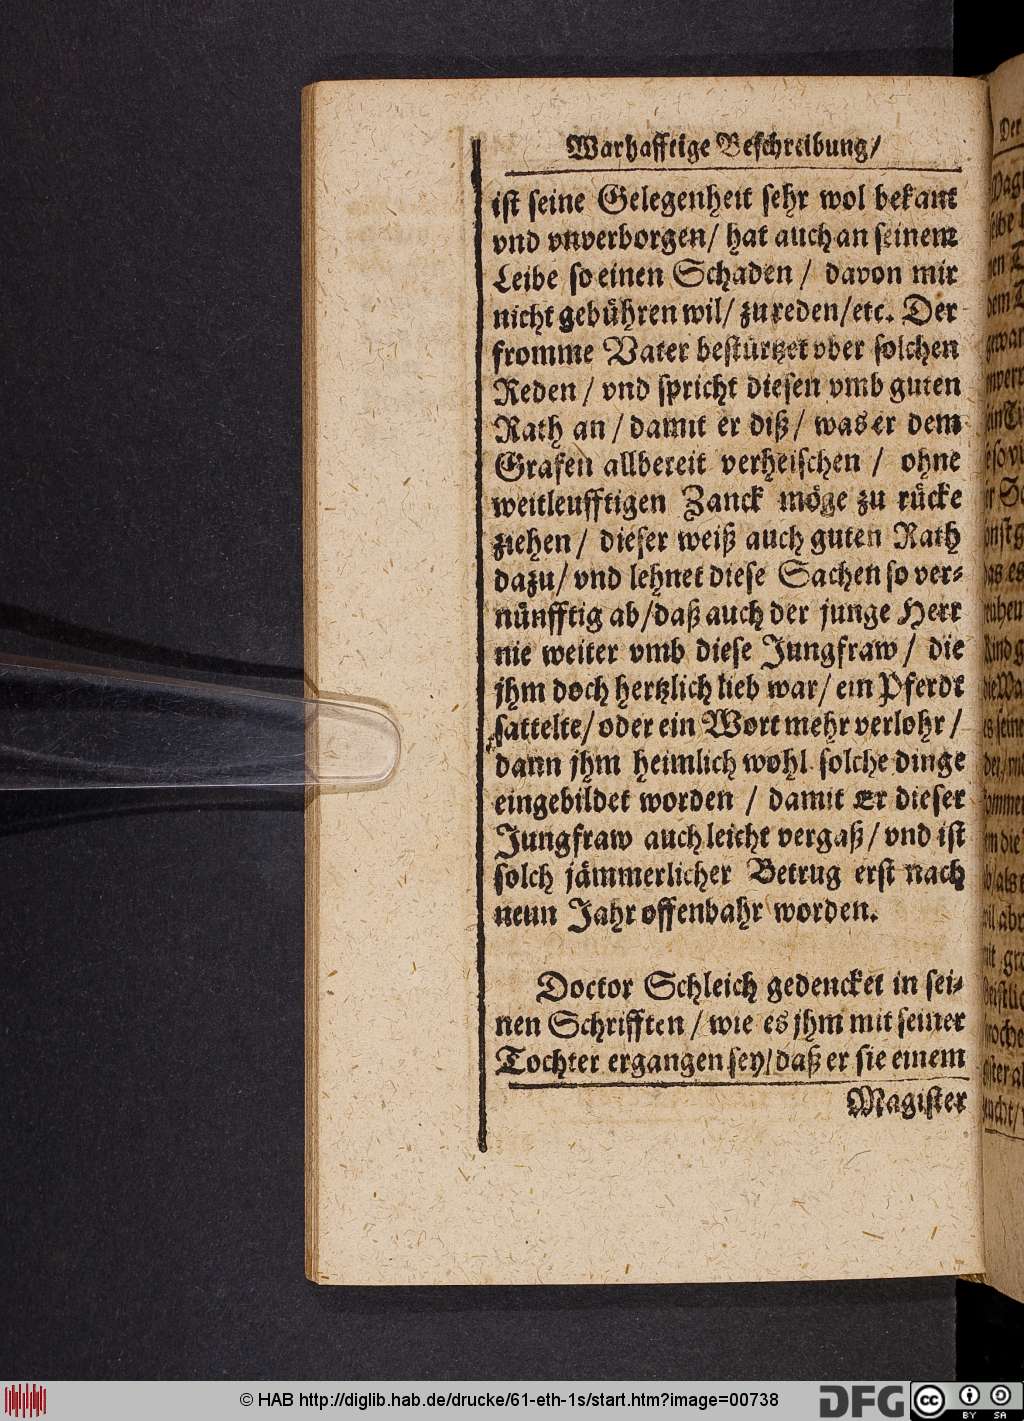 Warhafftige Beschreibung/
ist seine Gelegenheit sehr wol bekant
vnd vnverborgen/ hat auch an seinem
Leibe so einen Schaden / davon mir
nicht gebühren wil/ zu reden/etc. Der
fromme Vater bestürtzet vber solchen
Reden / vnd spricht diesen vmb guten
Rath an / damit er diß/ was er dem
Grafen allbereit verheischen / ohne
weitleufftigen Zanck möge zu rücke
ziehen / dieser weiß auch guten Rath
dazu/ vnd lehnet diese Sachen so ver-
nünfftig ab/daß auch der junge Herr
nie weiter vmb diese Jungfraw / die
jhm doch hertzlich lieb war/ ein Pferdt
sattelte/ oder ein Wort mehr verlohr /
dann jhm heimlich wohl solche dinge
eingebildet worden / damit Er dieser
Jungfraw auch leicht vergaß/ vnd ist
solch jämmerlicher Betrug erst nach
neun Jahr offenbahr worden.
Doctor Schleich gedencket in sei-
nen Schrifften / wie es jhm mit seiner
Tochter ergangen sey/daß er sie einem
Magister
© HAB http://diglib.hab.de/drucke/61-eth-1s/start.htm?image=00738
DFG
cc
BY SA